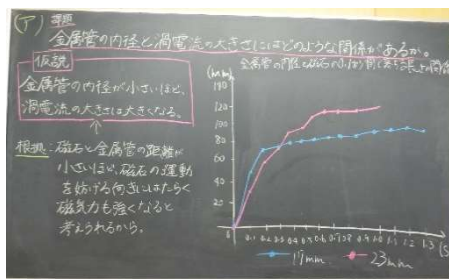 (ア) 課題
金属管の内径と渦電流の大きさにはどのような関係があるか。
仮説
金属管の内径が小さいほど、
渦電流の大きさは大きくなる。
根拠:磁石と金属管の距離が
小さいほど、磁石の運動
を妨げる向きにはたらく
磁気力も強くなると
考えられるから。
金属管の内径と磁石
(mm)
140
120
100
80
60
40
20
0
0.1 0.2 0.3 0.4 0.5 0.6 0.7 0.8 0.9 1.0 1.1 1.2 1.3 (s)
17mm 23mm